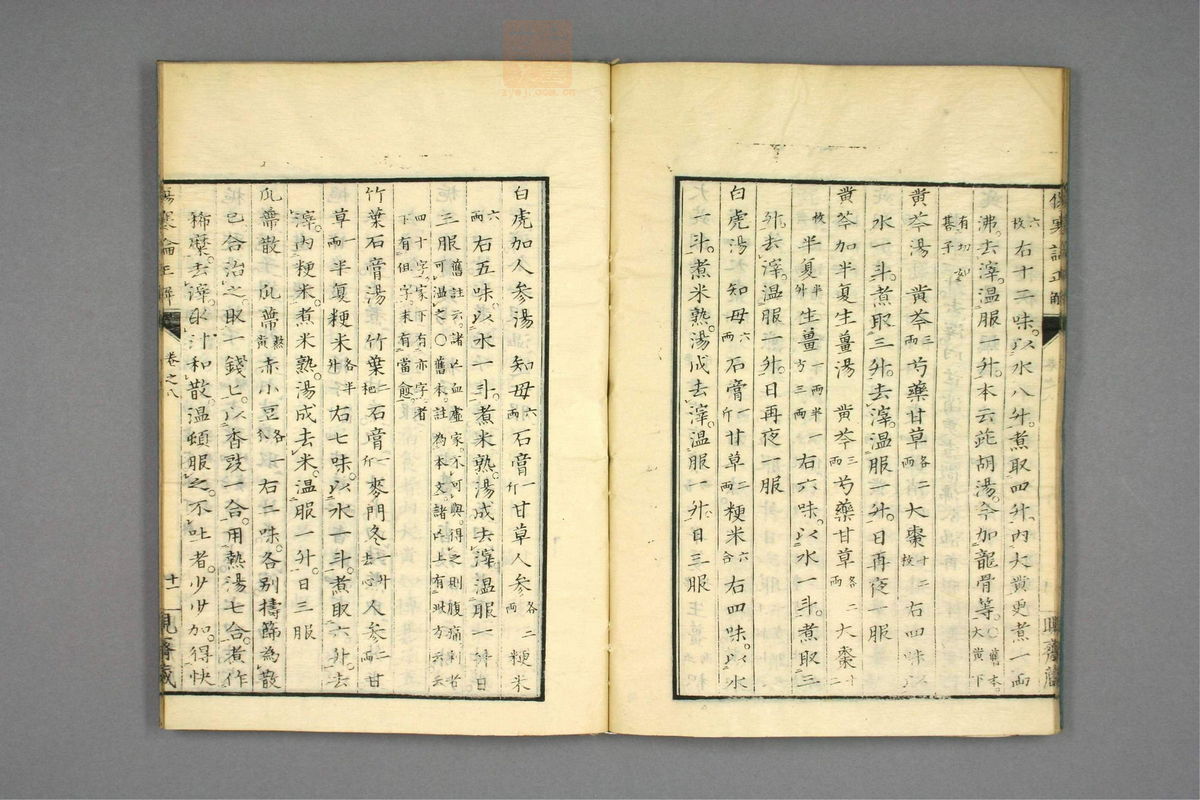 六枚右十二味。以水八升。煮取四升。內大黃更煮一兩
沸。去滓。温服一升。本云茈胡湯。今加龍骨等。〇舊本。大黃下
有切碁子
黃芩湯　黃芩三兩芍藥甘草各二兩大棗十二枚右四味以
水一斗。煮取三升。去滓。温服一升。日再夜一服
黃芩加半夏生薑湯　黃芩三兩芍藥甘草各二兩大棗十二
枚半夏半升生薑下兩半一方三兩右六味。以水一斗。煮取三
升。去滓。温服一升。日再夜一服
白虎湯　知母六兩石膏一斤甘草二兩粳米六合右四味。以水
一斗。煮米熟。湯成去滓。温服一升。日三服
白虎加人參湯　知母六兩石膏一斤甘草人參各二兩粳米
六兩右五味。以水一斗。煮米熟。湯成去滓。温服一升。日
三服舊註云。諸亡血虛家。不可與。得之則腹痛利者可溫之。〇舊本。註為本文。諸亡上有此方云云
四十字。家下有亦字。者下有但字。末有當愈
竹葉石膏湯　竹葉二把石膏一斤麥門冬一升去心人參二兩甘
草一兩半夏粳米各半升右七味。以水一斗。煮取六升。去
滓。內粳米。煮米熟。湯成去米。温服一升。日三服
瓜蒂散　瓜蒂熬黃赤小豆各一分右二味。各別擣篩。為散
已。合治之。取一錢匕。以香豉一合。用熱湯七合。煮作
稀糜。去滓。取汁和散。温頓服之。不吐者。少少加。得快
傷寒論正解
卷之八
十二